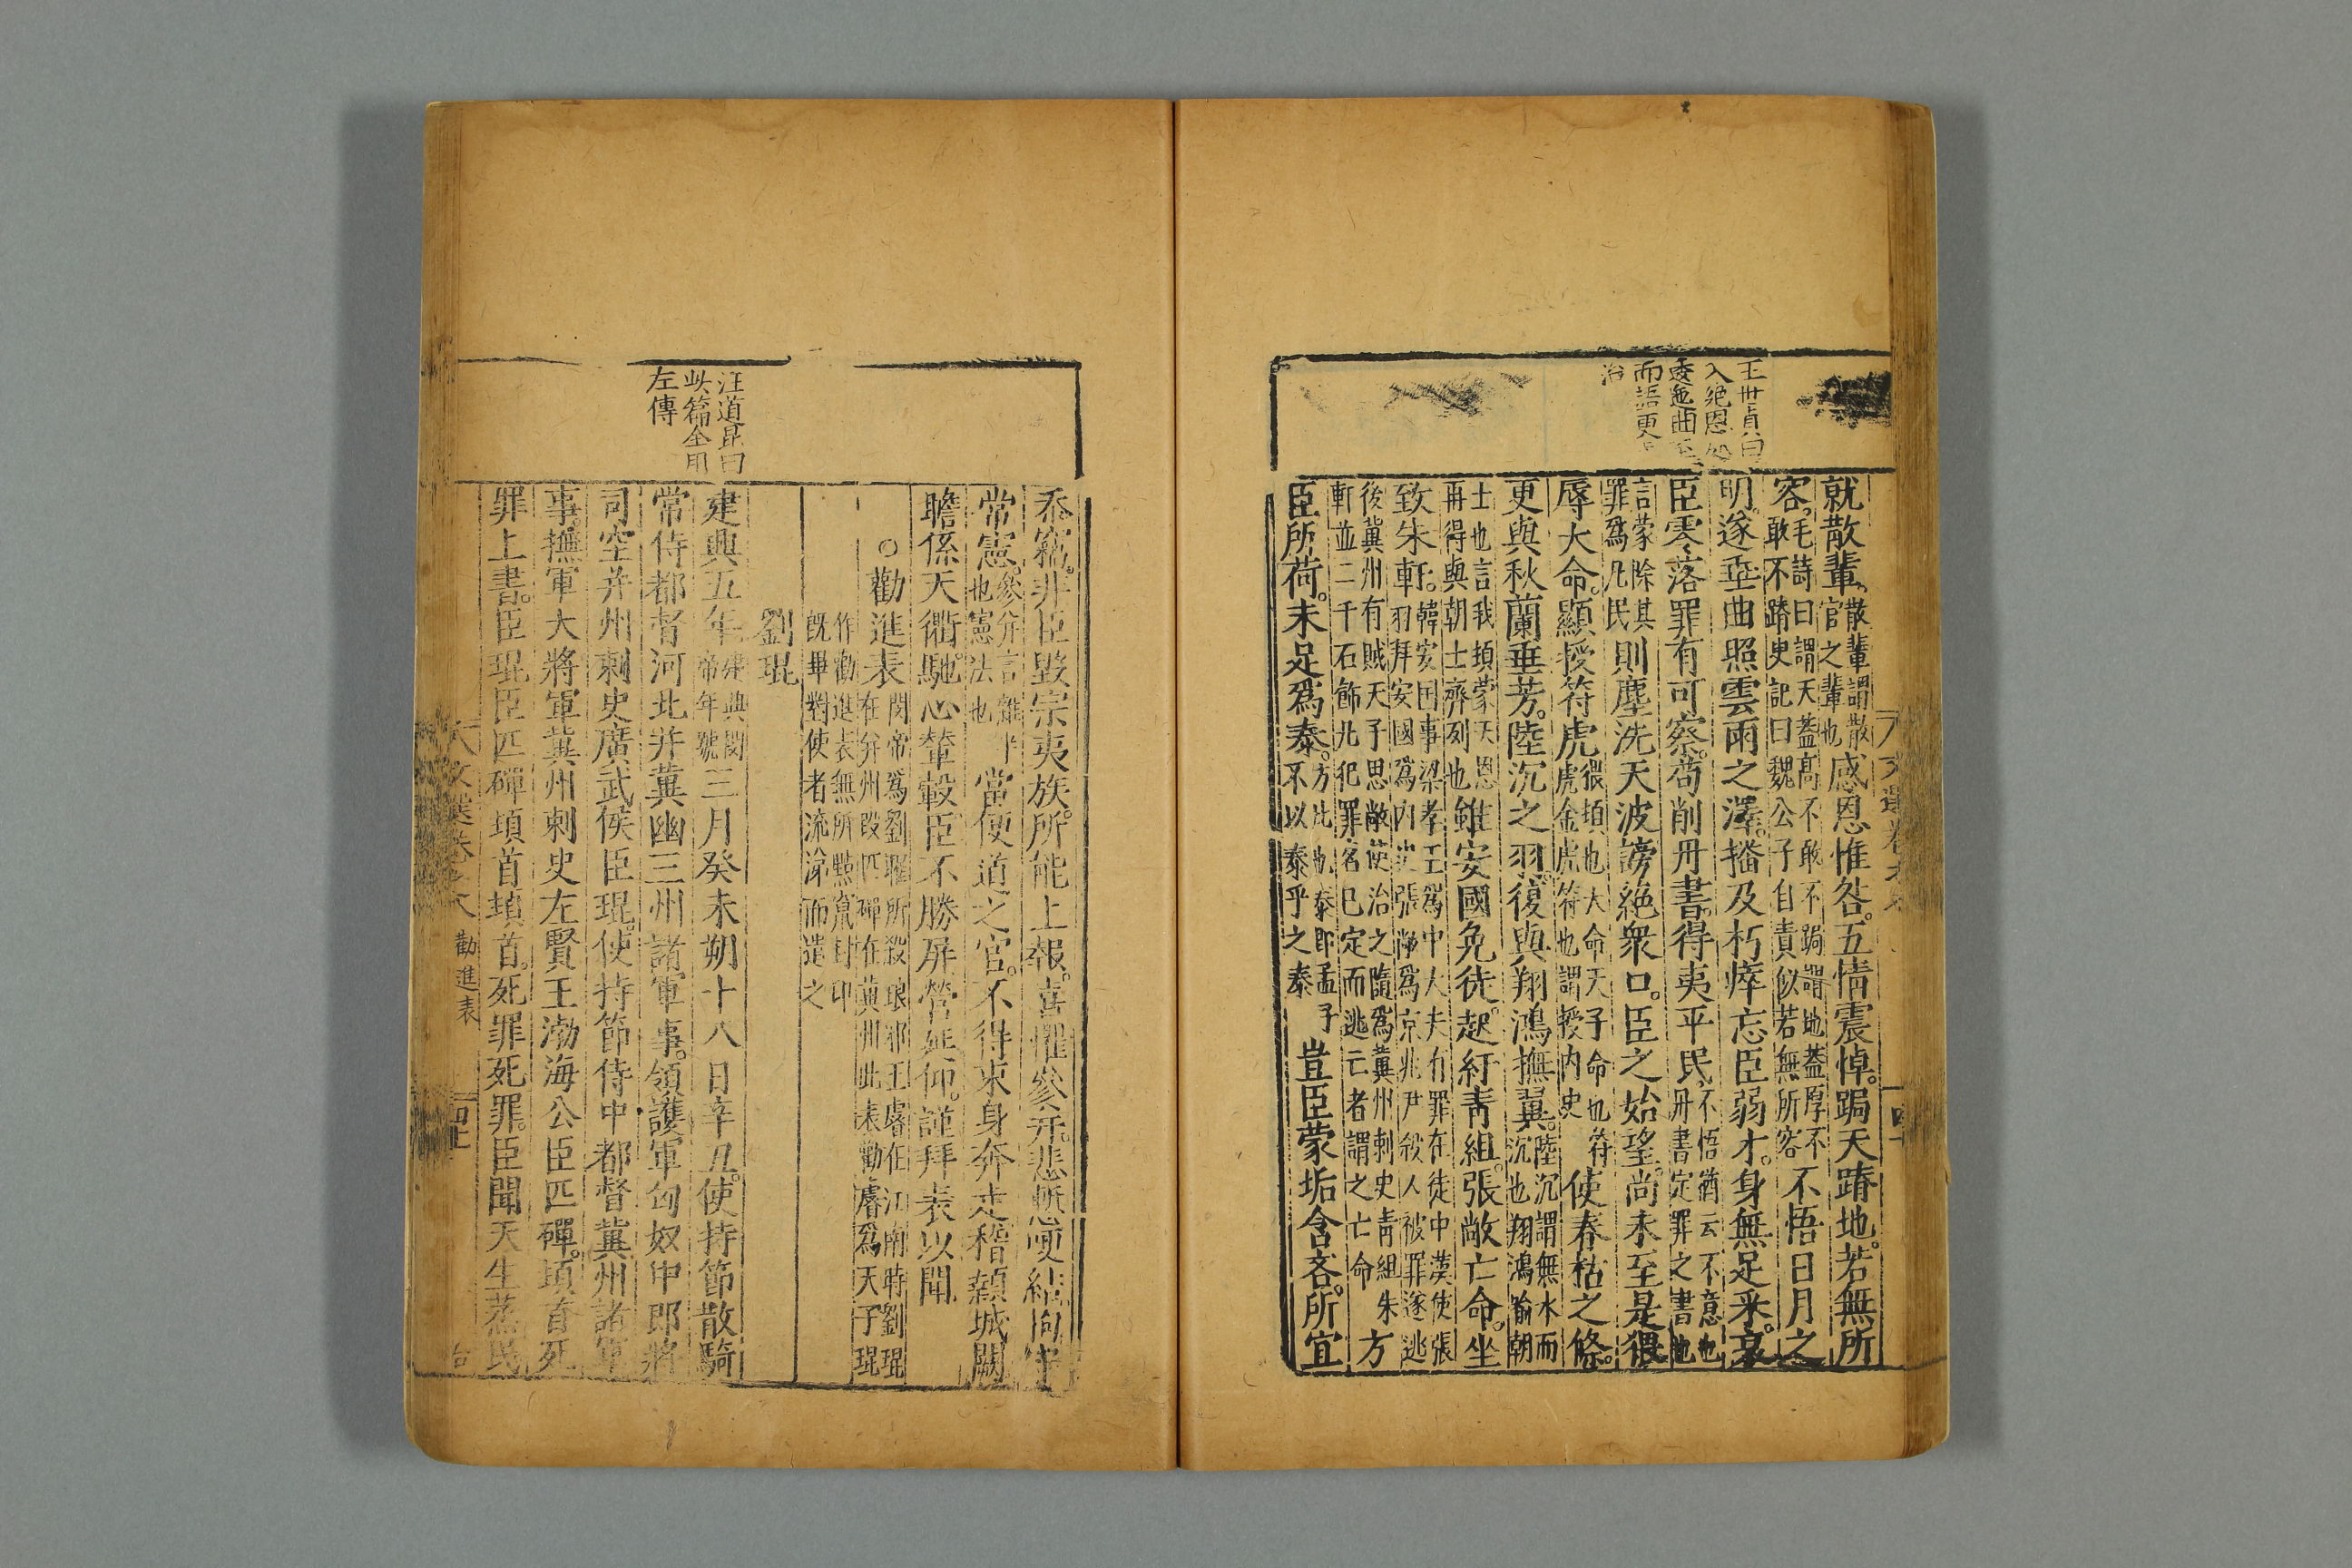 王世貞曰
入絕恩
而語更
治
就散輩散輩謂散
官之輩也感恩惟咎。五情震悼。跼天蹐地。若無所
容。毛詩曰謂天蓋高不敢不跼謂地蓋厚不
敢不蹐史記曰魏公子自責似若無所容不悟日月之
明。遂垂曲照雲雨之澤。播及朽瘁忘臣弱才。身無足采。哀
臣零落罪有可察。苟削丹書。得夷平民不悟猶云不意也
丹書定罪之書也
言蒙除其
罪爲凡民則塵洗天波謗絕衆口。臣之始望。尚未至是。猥
辱大命。顯授符虎猥頓也大命天子命也符
虎金虎符也謂授內史使春枯之條。
更與秋蘭垂芳。陸沉之羽。復與翔鴻撫翼。陸沉謂無水而
沉也翔鴻喻朝
士也言我頓蒙天恩
再得與朝士齊列也雖安國免徒。起紆青組。張敞亡命。坐
致朱軒。韓安国事梁孝王爲中大夫有罪在徒中漢使張
羽拜安國爲內史張敞爲京兆尹殺人被罪遂逃
後冀州有賊天子思敞使治之隨爲冀州刺史青組朱
軒並二千石飾凡犯罪名已定而逃亡者謂之亡命方
臣所荷。未足爲泰。方比也泰即孟子
不以泰乎之泰豈臣蒙垢含吝。所宜
忝竊。非臣毀宗夷族。所能上報。喜懼參幷。悲慙哽結向守
常憲。參分言雜半
也憲法也當便道之官。不得束身奔走稽顙城闕
瞻係天衢。馳心輦轂臣不勝屏營延仰。謹拜表以聞
○勸進表閔帝爲劉曜所殺琅邪王睿在江南時劉琨
在幷州段匹磾在薊州此表勸睿爲天子琨
作勸進表無所點竄封印
旣畢對使者流涕而遣之
劉琨
汪道昆曰
此篇全用
左傳
建興五年建興閔
帝年號三月癸未朔十八日辛丑。使持節散騎
常侍都督河北幷冀幽三州諸軍事。領護軍匈奴中郎將
司空幷州刺史廣武侯臣琨。使持節侍中都督冀州諸軍
事。撫軍大將軍冀州刺史左賢王渤海公臣匹磾。頓首死
罪上書。臣琨臣匹磾頓首頓首。死罪死罪。臣聞天生蒸民
文選卷 勸進表